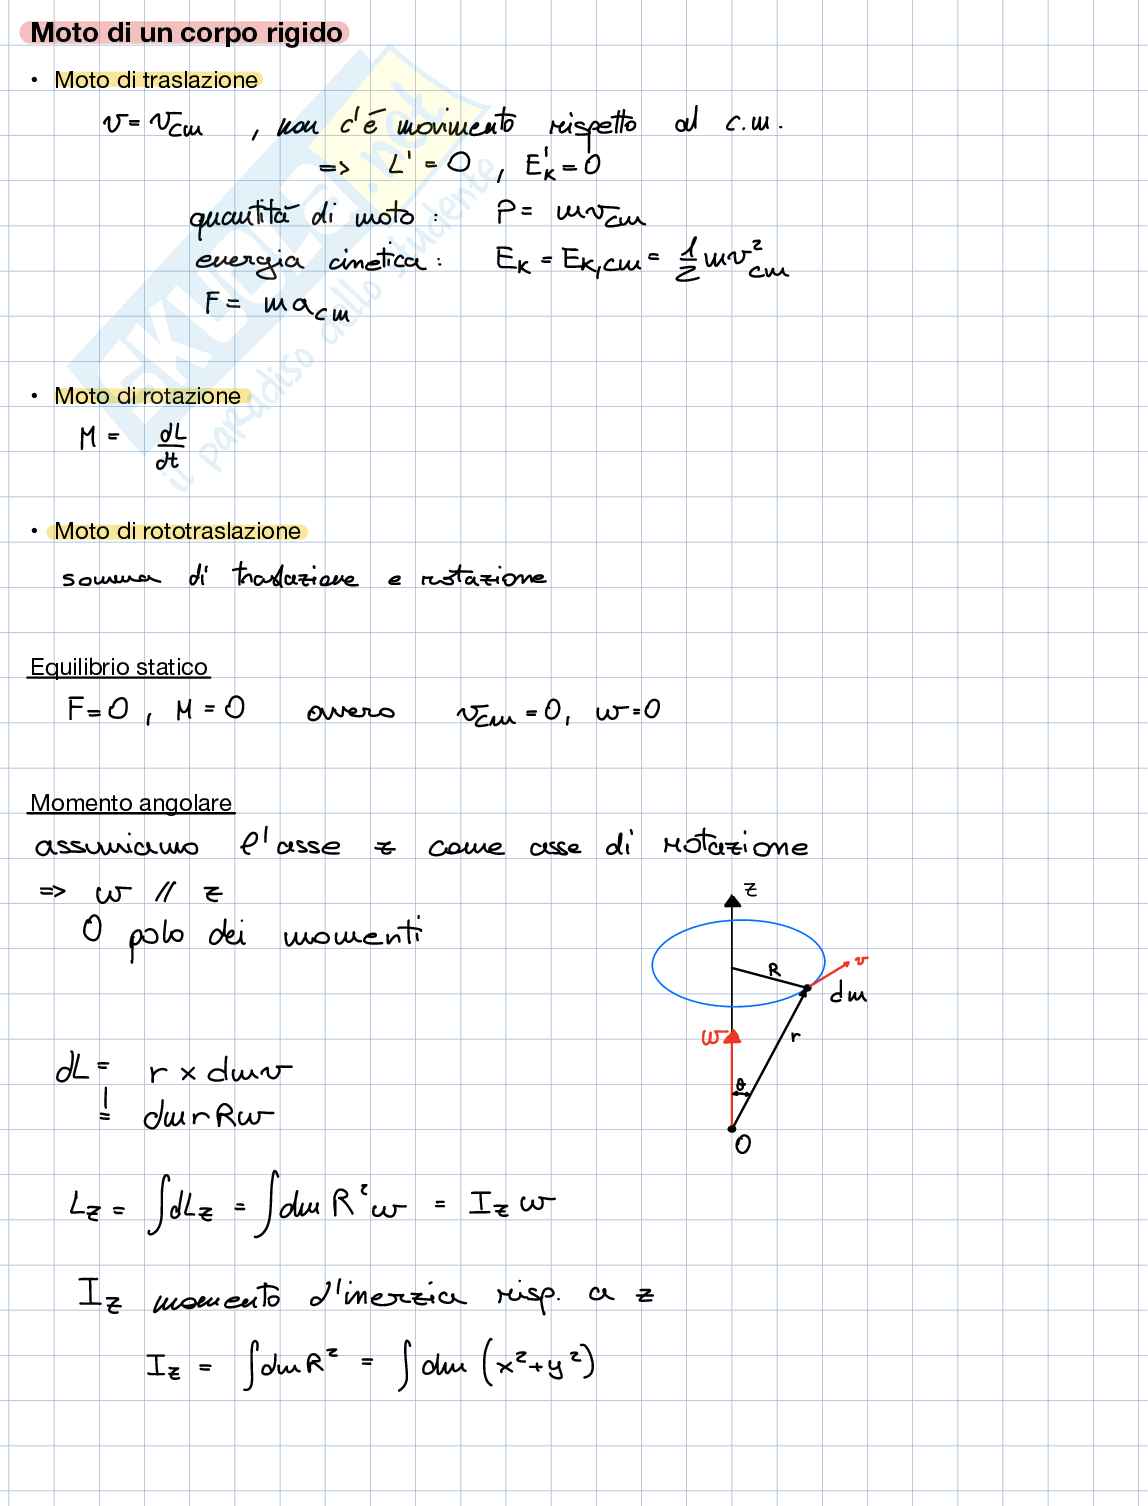 Moto di un corpo rigido
• Moto di traslazione
v = v_cm , non c'è movimento rispetto al c.m.
=> L' = 0 , E'_K = 0
quantità di moto : P = mv_cm
energia cinetica : E_K = E_K,cm = 1/2 mv²_cm
F = ma_cm
• Moto di rotazione
M = dL/dt
• Moto di rototraslazione
somma di traslazione e rotazione
Equilibrio statico
F=0 , M=0 ovvero v_cm = 0, w=0
Momento angolare
assumiamo l'asse z come asse di rotazione
=> w // z
O polo dei momenti
z
R
v
dm
w
r
θ
O
dL = r × dmv
= dmrRw
L_z = ∫dL_z = ∫dm R²w = I_z w
I_z momento d'inerzia risp. a z
I_z = ∫dmR² = ∫dm (x²+y²)
SKUOLA.net
il paradiso dello studente